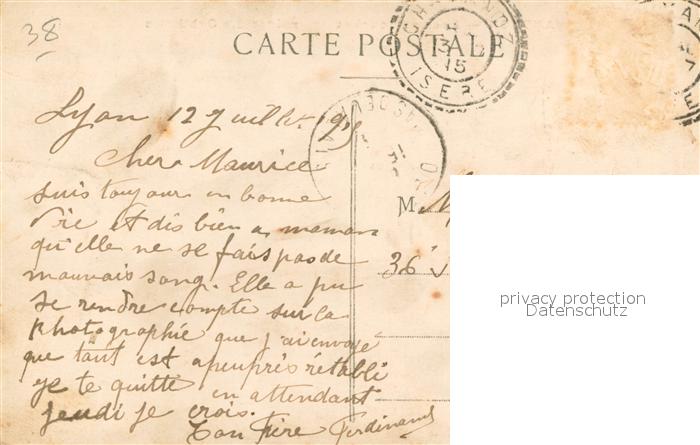 38
CARTE POSTALE
ISERE
15
Lyon 12 Juillet 1915
Cher Maurice
suis toujour en bonne
vie et dis bien a maman
qu'elle ne se fais pas de
mauvais sang. Elle a pu
se rendre compte sur la
photographie que j'ai envoyé
que tout est apeuprès rétabli
je te quitte en attendant
jeudi je crois.
Ton Frère Ferdinand
M
36
privacy protection
Datenschutz